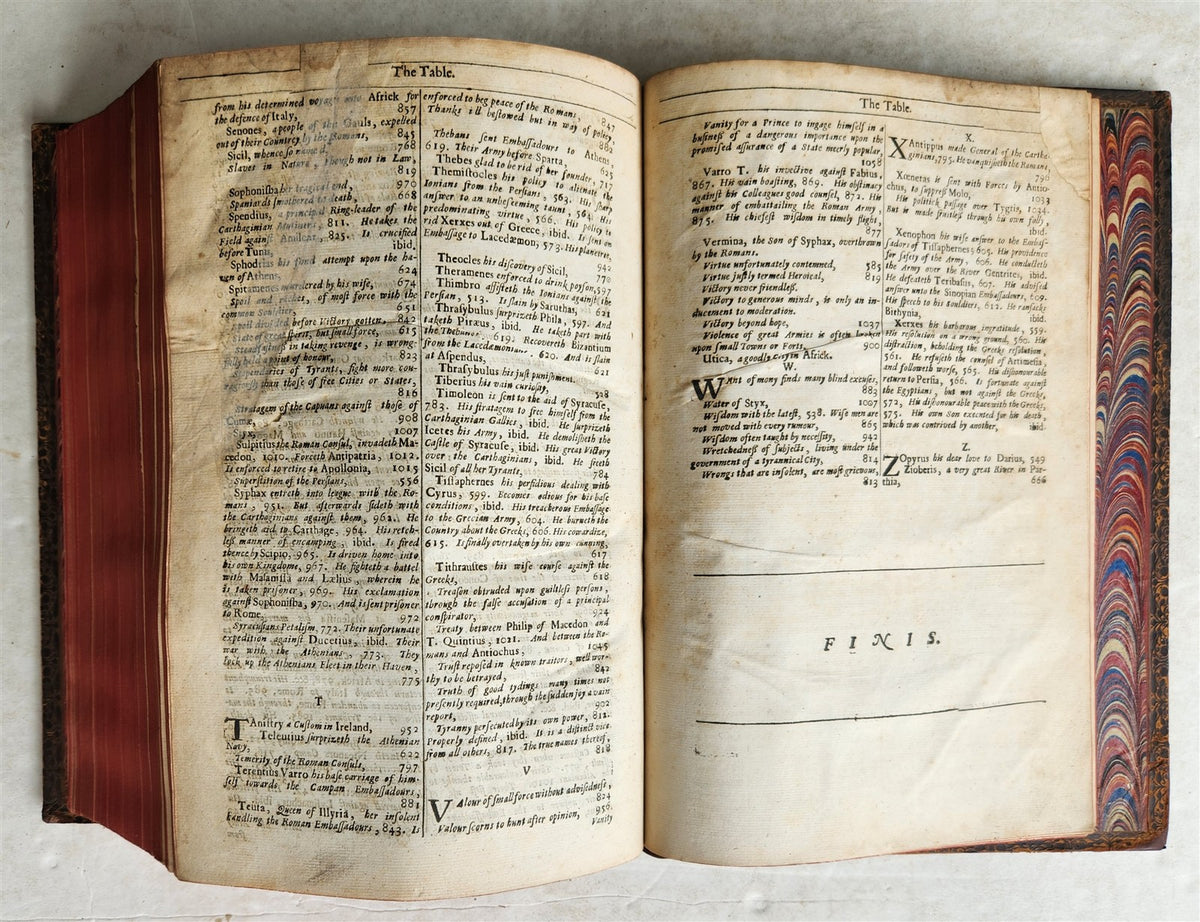 The Table.
from his determined voyage into Africk for
the defence of Italy, 857
Senones, a people of the Gauls, expelled
out of their Country by the Romans, 845
Sicil, whence so named, 768
Slaver in Nature, though not in Law,
819
Sophonisba her tragical end, 970
Spaniards smothered to death, 668
Spendius, a principal Ring-leader of the
Carthaginian Mutiners, 811. He takes the
Field against Amilcar, 825. Is crucified
before Tunis, ibid.
Sphodrias his fond attempt upon the ha-
ven of Athens, 624
Spitamenes murdered by his wife, 674
Spoil and riches, of most force with the
common Souldier, 651
Spoil divided before Victory gotten, 842
State of great spirit, but small force, 615
in taking revenge, is wrong-
point of honour, 823
of Tyrants, fight more cou-
ragiously than those of free Cities or States,
816
Stratagem of the Capuans against those of
Cumæ, 908
Styx, 1007
Sulpitius the Roman Consul, invadeth Ma-
cedon, 1010. Forceth Antipatria, 1012.
Is enforced to retire to Apollonia, 1015
Superstition of the Persians, 556
Syphax entreth into league with the Ro-
mans, 951. But afterwards sideth with
the Carthaginians against them, 962. He
bringeth aid to Carthage, 964. His retch-
less manner of encamping, ibid. Is fired
thence by Scipio, 965. Is driven home into
his own Kingdome, 967. He fighteth a battel
with Masanissa and Lælius, wherein he
is taken prisoner, 969. His exclamation
against Sophonisba, 970. And is sent prisoner
to Rome, 972
Syracusians Petalism, 772. Their unfortunate
expedition against Ducetius, ibid. Their
war with the Athenians, 773. They
lock up the Athenians Fleet in their Haven,
775
T
TAnistry a Custom in Ireland, 952
Teleutius surprizeth the Athenian
Navy, 622
Temerity of the Roman Consuls, 797
Terentius Varro his base carriage of him-
self towards the Campan Embassadours,
881
Teuta, Queen of Illyria, her insolent
handling the Roman Embassadours, 843. Is
enforced to beg peace of the Romans, 847
Thanks ill bestowed but in way of policy,
882
Thebans sent Embassadours to Athens,
619. Their Army before Sparta, 625
Thebes glad to be rid of her founder, 717
Themistocles his policy to alienate the
Ionians from the Persians, 563. His sharp
answer to an unbeseeming taunt, 564. His
predominating virtue, 566. His policy to
rid Xerxes out of Greece, ibid. Is sent on
Embassage to Lacedæmon, 573. His planetree,
Theocles his discovery of Sicil, 942
Theramenes enforced to drink poyson, 597
Thimbro assisteth the Ionians against the
Persian, 513. Is slain by Saruthas,
Thrasybulus surprizeth Phila, 597. And
taketh Piræus, ibid. He taketh part with
the Thebans, 619. Recovereth Bizantium
from the Lacedæmonians, 620. And is slain
at Aspendus, 621
Thrasybulus his just punishment,
Tiberius his vain curiosity, 528
Timoleon is sent to the aid of Syracuse,
783. His stratagem to free himself from the
Carthaginian Gallies, ibid. He surprizeth
Icetes his Army, ibid. He demolisheth the
Castle of Syracuse, ibid. His great Victory
over the Carthaginians, ibid. He freeth
Sicil of all her Tyrants, 784
Tissaphernes his perfidious dealing with
Cyrus, 599. Becomes odious for his base
conditions, ibid. His treacherous Embassage
to the Grecian Army, 604. He burneth the
Country about the Greeks, 606. His cowardize,
615. Is finally overtaken by his own cunning,
617
Tithraustes his wise course against the
Greeks, 618
Treason obtruded upon guiltless persons,
through the false accusation of a principal
conspirator, 924
Treaty between Philip of Macedon and
T. Quintius, 1021. And between the Ro-
mans and Antiochus, 1045
Trust reposed in known traitors, well wor-
thy to be betrayed, 842
Truth of good tydings many times not
presently required, through the sudden joy a vain
report, 902
Tyranny persecuted by its own power, 812.
Properly defined, ibid. It is a distinct vice
from all others, 817. The true names thereof,
818
V
VAlour of small force without advisedness,
824
Valour scorns to hunt after opinion, 956.
Vanity
The Table.
Vanity for a Prince to ingage himself in a
business of a dangerous importance upon the
promised assurance of a State meerly popular,
1058
Varro T. his invective against Fabius,
867. His vain boasting, 869. His obstinacy
against his Colleagues good counsel, 872. His
manner of embattailing the Roman Army,
875. His chiefest wisdom in timely flight,
877
Vermina, the Son of Syphax, overthrown
by the Romans.
Virtue unfortunately contemned, 585
Virtue justly termed Heroical, 819
Victory never friendless.
Victory to generous minds, is only an in-
ducement to moderation.
Victory beyond hope, 1037
Violence of great Armies is often broken
upon small Towns or Forts, 900
Utica, a goodly City in Africk.
W.
WAnt of mony finds many blind excuses,
883
Water of Styx, 1007
Wisdom with the latest, 538. Wise men are
not moved with every rumour, 865
Wisdom often taught by necessity, 942
Wretchedness of subjects, living under the
government of a tyrannical City, 814
Wrongs that are insolent, are most grievous,
813
X.
XAntippus made General of the Cartha-
ginians, 795. He vanquisheth the Romans,
796
Xœnetas is sent with Forces by Antio-
chus, to suppress Molo, 1033
His politick passage over Tygris, 1034.
But is made fruitless through his own folly,
ibid.
Xenophon his wise answer to the Embas-
sadors of Tissaphernes, 605. His providence
for safety of the Army, 606. He conducteth
the Army over the River Centrites, ibid.
He defeateth Teribasus, 607. His advised
answer unto the Sinopian Embassadours, 609.
His speech to his souldiers, 612. He ransacks
Bithynia, ibid.
Xerxes his barbarous ingratitude, 559.
His resolution on a wrong ground, 560. His
distraction, beholding the Greeks resolution,
561. He refuseth the counsel of Artimesia,
and followeth worse, 565. His dishonourable
return to Persia, 566. Is fortunate against
the Egyptians, but not against the Greeks,
572. His dishonourable peace with the Greeks,
575. His own Son executed for his death,
which was contrived by another, ibid.
Z.
ZOpyrus his dear love to Darius, 549
Zioberis, a very great River in Par-
thia, 666
FINIS.